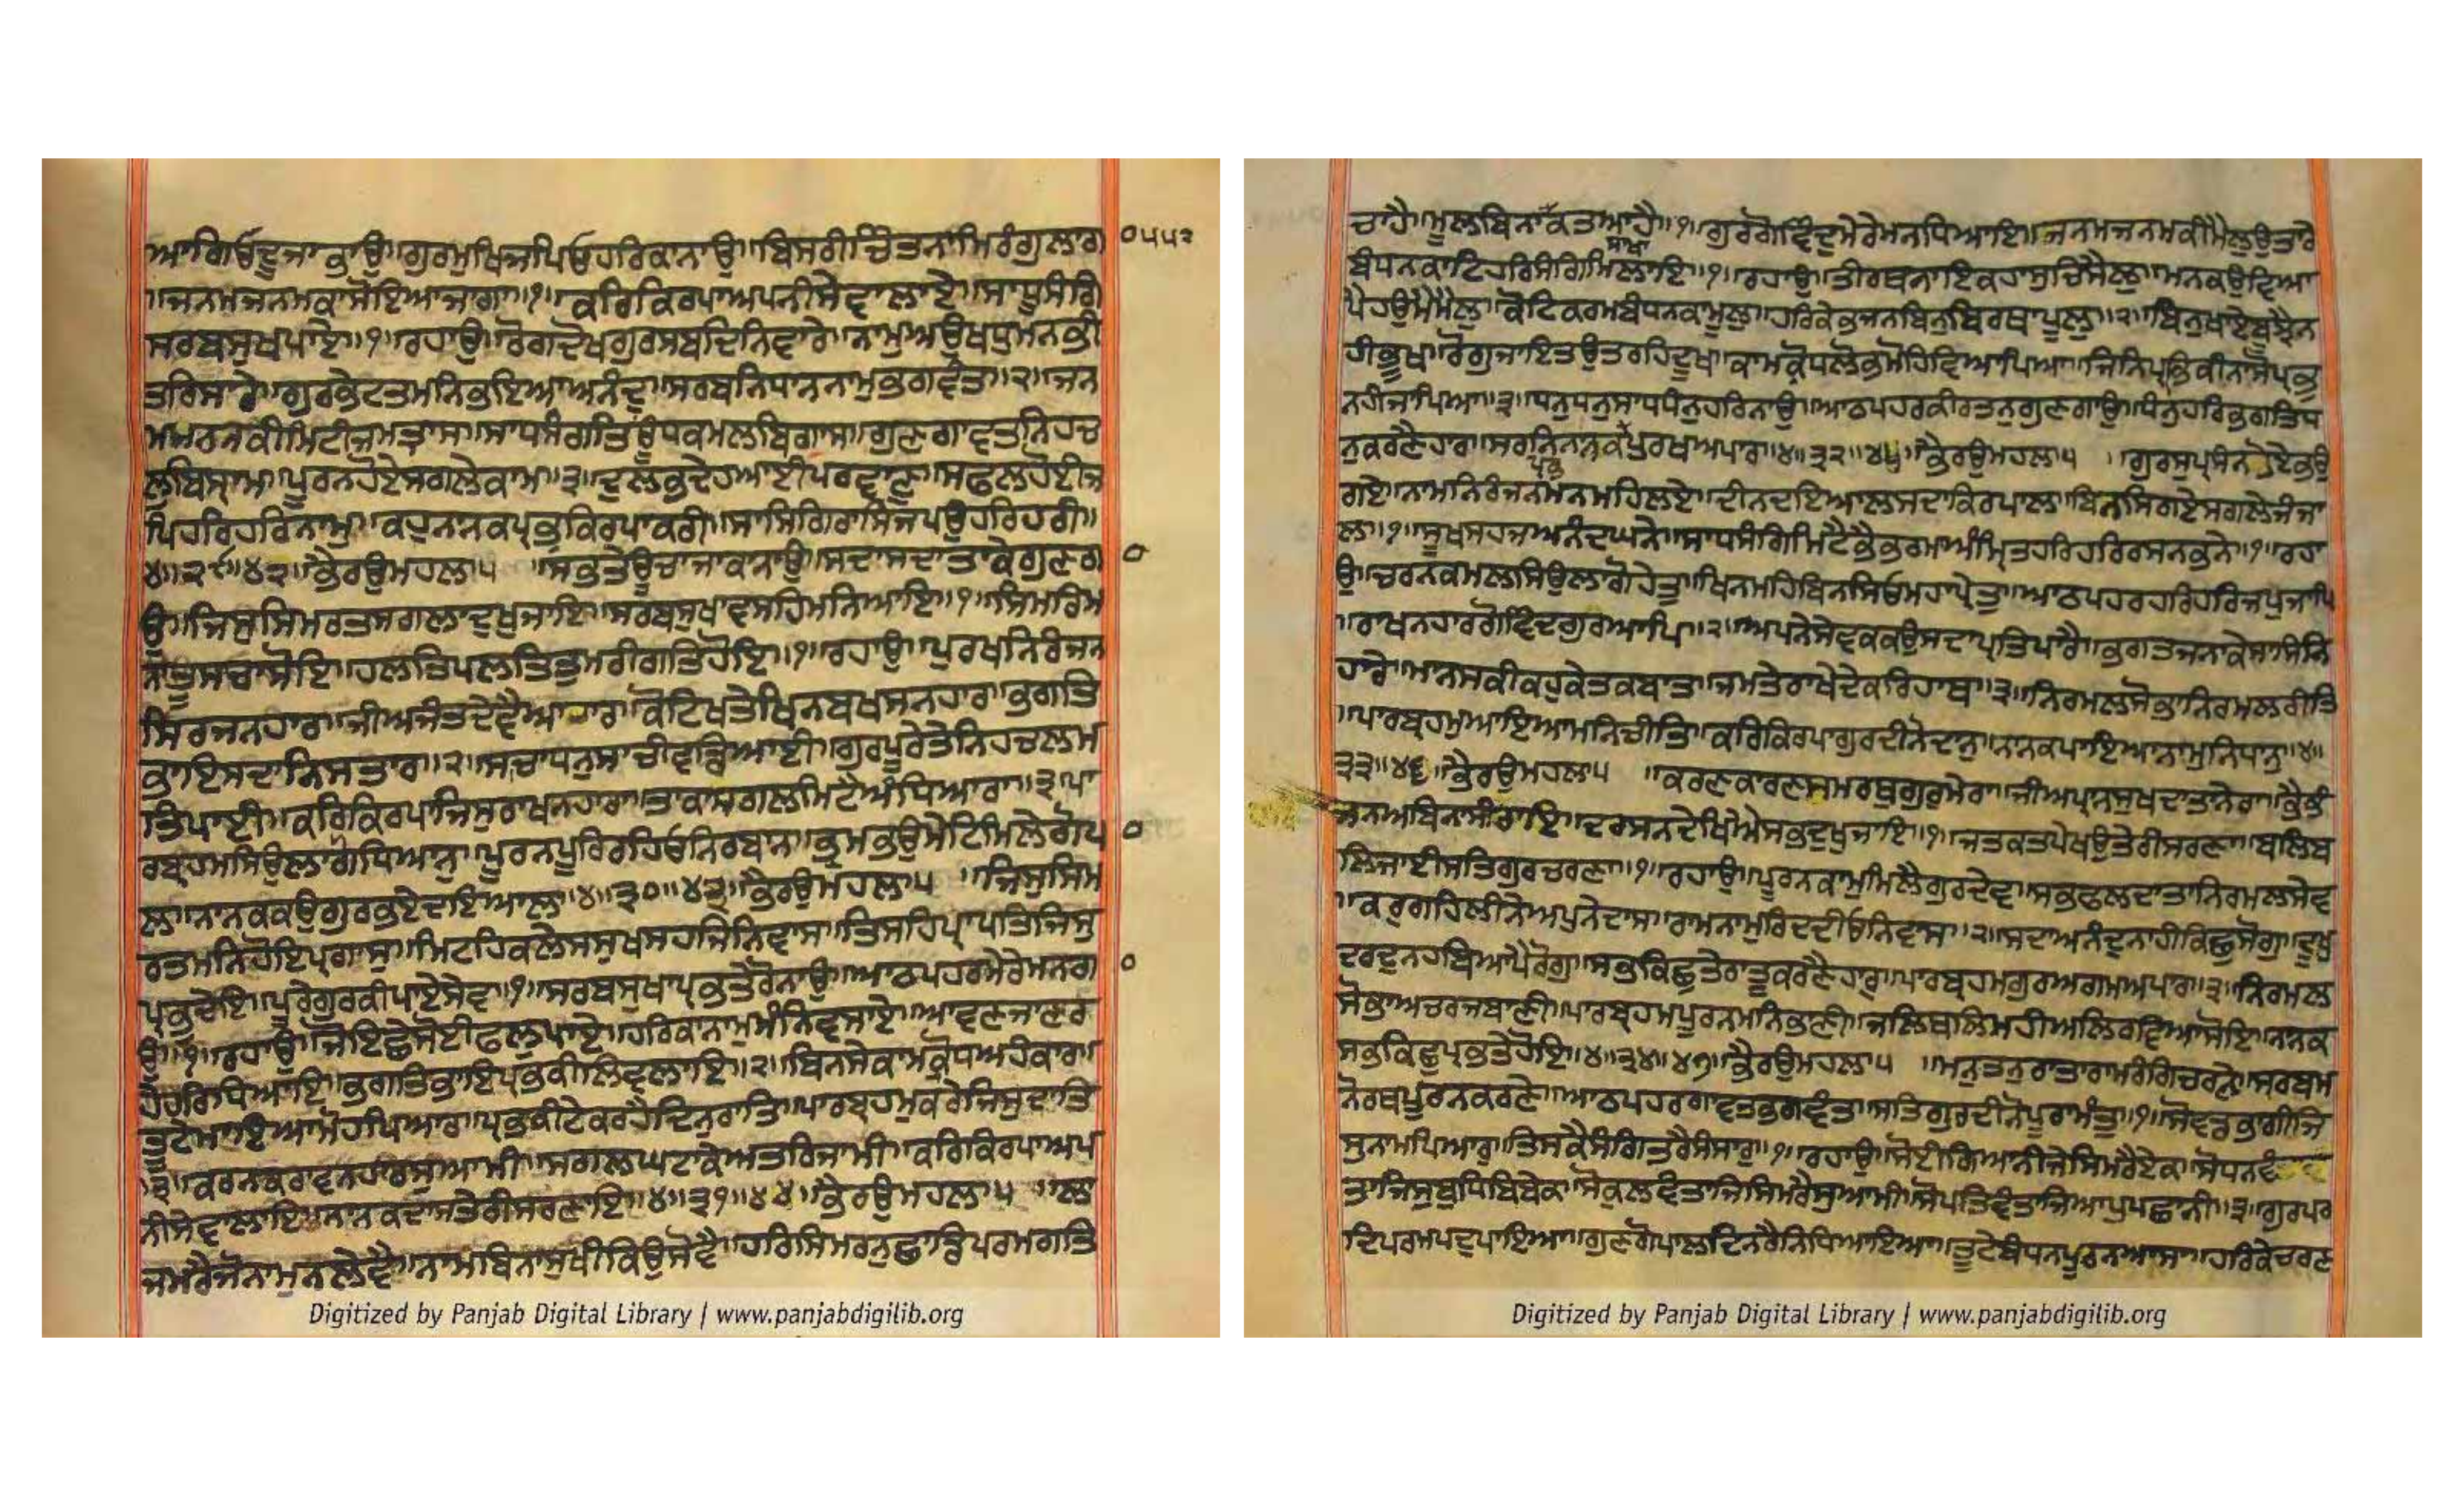 ਆਗਿਰਦੁਜਾਕਾਉ॥ਗੁਰਮੁਖਿਜਪਿਓਹਰਿਕਾਨਾਉ॥ਬਿਸਰੀਚਿੰਤਨਾਮਿਰੰਗੁਲਾਗ
॥ਜਨਮਜਨਮਕਾਸੋਇਆਜਾਗਾ॥੧॥ਕਰਿਕਿਰਪਾਅਪਨੀਸੇਵਾਲਾਏ॥ਸਾਧੂਸੰਗਿ
ਸਰਬਸੁਖਪਾਏ॥੧॥ਰਹਾਉ॥ਰੋਗਦੋਖਗੁਰਸਬਦਿਨਿਵਾਰੇ॥ਨਾਮੁਅਉਖਧੁਮਨਭੀ
ਤਰਿਸਾਰੇ॥ਗੁਰਭੇਟਤਮਨਿਭਇਆਅਨੰਦ॥ਸਰਬਨਿਧਾਨਨਾਮੁਭਗਵੰਤ॥੨॥ਜਨ
ਮਮਰਨਕੀਮਿਟੀਜਮਤ੍ਰਾਸ॥ਸਾਧਸੰਗਤਿਊਂਧਕਮਲਬਿਗਾਸ॥ਗੁਣਗਾਵਤਨਿਹਚ
ਲੁਬਿਸ੍ਰਾਮ॥ਪੂਰਨਹੋਏਸਗਲੇਕਾਮ॥੩॥ਦੁਲਭਦੇਹਆਈਪਰਵਾਣੁ॥ਸਫਲਹੋਈਜ
ਪਿਹਰਿਹਰਿਨਾਮੁ॥ਕਹੁਨਨਕਪ੍ਰਭਕਿਰਪਾਕਰੀ॥ਸਾਸਿਗਿਰਾਸਿਜਪਉਹਰਿਹਰੀ॥
੪॥੨੯॥੪੨॥ਭੈਰਉਮਹਲਾ੫ ॥ਸਭਤੇਊਚਾਜਾਕਨਾਉ॥ਸਦਾਸਦਾਤਾਕੇਗੁਣਗ
ਉ॥ਜਿਸੁਸਿਮਰਤਸਗਲਾਦੁਖੁਜਾਇ॥ਸਰਬਸੁਖਵਸਹਿਮਨਿਆਇ॥੧॥ਸਿਮਰਿਮ
ਨਾਤੂਸਚਾਸੋਇ॥ਹਲਤਿਪਲਤਿਤੁਮਰੀਗਤਿਹੋਇ॥੧॥ਰਹਾਉ॥ਪੁਰਖਨਿਰੰਜਨ
ਸਿਰਜਨਹਾਰ॥ਜੀਅਜੰਤਦੇਵੈਆਹਾਰ॥ਕੋਟਿਖਤੇਖਿਨਬਖਸਨਹਾਰ॥ਭਗਤਿ
ਭਾਇਸਦਾਨਿਸਤਾਰ॥੨॥ਸਚਾਧਨੁਸਾਚੀਵਡਿਆਈ॥ਗੁਰਪੂਰੇਤੇਨਿਹਚਲਮ
ਤਿਪਾਈ॥ਕਰਿਕਿਰਪਾਜਿਸੁਰਾਖਨਹਾਰਾ॥ਤਾਕਾਸਗਲਮਿਟੈਅੰਧਿਆਰਾ॥੩॥ਪਾ
ਰਬ੍ਰਹਮਸਿਉਲਾਗੋਧਿਆਨੁ॥ਪੂਰਨਪੂਰਿਰਹਿਓਨਿਰਬਾਨ॥ਭ੍ਰਮਭਉਮੇਟਿਮਿਲੇਗੋਪ
ਲ॥ਨਾਨਕਕਉਗੁਰਭਏਦਇਆਲ॥੪॥੩੦॥੪੩॥ਭੈਰਉਮਹਲਾ੫ ॥ਜਿਸੁਸਿਮ
ਰਤਮਨਿਹੋਇਪ੍ਰਗਾਸੁ॥ਮਿਟਹਿਕਲੇਸਸੁਖਸਹਜਿਨਿਵਾਸ॥ਤਿਸਹਿਪ੍ਰਾਪਤਿਜਿਸੁ
ਪ੍ਰਭੁਦੇਇ॥ਪੂਰੇਗੁਰਕੀਪਾਏਸੇਵ॥੧॥ਸਰਬਸੁਖਪ੍ਰਭਤੇਰੋਨਾਉ॥ਆਠਪਹਰਮੇਰੇਮਨਗਾ
ਉ॥੧॥ਰਹਾਉ॥ਜੋਇਛੈਸੋਈਫਲੁਪਾਏ॥ਹਰਿਕਾਨਾਮੁਮੰਨਿਵਸਾਏ॥ਆਵਣਜਾਣਰ
ਹੇਹਰਿਧਿਆਇ॥ਭਗਤਿਭਾਇਪ੍ਰਭਕੀਲਿਵਲਾਇ॥੨॥ਬਿਨਸੇਕਾਮਕ੍ਰੋਧਅਹੰਕਾਰ॥
ਤੂਟੇਮਾਇਆਮੋਹਪਿਆਰ॥ਪ੍ਰਭਕੀਟੇਕਰਹੈਦਿਨੁਰਾਤਿ॥ਪਾਰਬ੍ਰਹਮੁਕਰੇਜਿਸੁਦਾਤਿ
॥੩॥ਕਰਨਕਰਾਵਨਹਾਰਸੁਆਮੀ॥ਸਗਲਘਟਾਕੇਅੰਤਰਿਜਾਮੀ॥ਕਰਿਕਿਰਪਾਅਪ
ਨੀਸੇਵਾਲਾਇ॥ਨਾਨਕਦਾਸਤੇਰੀਸਰਣਾਇ॥੪॥੩੧॥੪੪॥ਭੈਰਉਮਹਲਾ੫ ॥ਲਾ
ਜਮਰੈਜੋਨਾਮੁਨਲੇਵੈ॥ਨਾਮਬਿਨਾਸੁਖੀਕਿਉਸੋਵੈ॥ਹਰਿਸਿਮਰਨੁਛਾਡਿਪਰਮਗਤਿ
੦੫੫੨
Digitized by Panjab Digital Library | www.panjabdigilib.org
ਚਾਹੈ॥ਮੂਲਬਿਨਾਕਤਆਹੈ॥੧॥ਗੁਰਗੋਵਿੰਦੁਮੇਰੇਮਨਧਿਆਇ॥ਜਨਮਜਨਮਕੀਮੈਲੁਉਤਾਰੈ
ਬੰਧਨਕਾਟਿਹਰਿਸੰਗਿਮਿਲਾਇ॥੧॥ਰਹਾਉ॥ਤੀਰਥਨਾਇਕਹਾਸੁਚਿਸੈਲੁ॥ਮਨਕਉਵਿਆ
ਪੈਹਉਮੈਮੈਲੁ॥ਕੋਟਿਕਰਮਬੰਧਨਕਾਮੂਲੁ॥ਹਰਿਕੇਭਜਨਬਿਨੁਬਿਰਥਾਪੂਲੁ॥੨॥ਬਿਨੁਖਾਏਬੂਝੈਨ
ਹੀਭੂਖ॥ਰੋਗੁਜਾਇਤਉਤਰਹਿਦੂਖ॥ਕਾਮਕ੍ਰੋਧਲੋਭਮੋਹਿਵਿਆਪਿਆ॥ਜਿਨਿਪ੍ਰਭਿਕੀਨਾਸੋਪ੍ਰਭੁ
ਨਹੀਜਾਪਿਆ॥੩॥ਧਨੁਧਨੁਸਾਧਧੰਨੁਹਰਿਨਾਉ॥ਆਠਪਹਰਕੀਰਤਨੁਗੁਣਗਾਉ॥ਧੰਨੁਹਰਿਭਗਤਿਧ
ਨੁਕਰਣੈਹਾਰ॥ਸਰਨਿਨਾਨਕਪ੍ਰਭਪੁਰਖਅਪਾਰ॥੪॥੩੨॥੪੫॥ਭੈਰਉਮਹਲਾ੫ ॥ਗੁਰਸੁਪ੍ਰਸੰਨਹੋਏਭਉ
ਗਏ॥ਨਾਮਨਿਰੰਜਨਮਨਮਹਿਲਏ॥ਦੀਨਦਇਆਲਸਦਾਕਿਰਪਾਲਾ॥ਬਿਨਸਿਗਏਸਗਲੇਜੰਜਾ
ਲਾ॥੧॥ਸੂਖਸਹਜਅਨੰਦਘਨੇ॥ਸਾਧਸੰਗਿਮਿਟੈਭੈਭਰਮਾਅੰਮ੍ਰਿਤਹਰਿਹਰਿਰਸਨਭਨੇ॥੧॥ਰਹਾ
ਉ॥ਚਰਨਕਮਲਸਿਉਲਾਗੋਹੇਤੁ॥ਖਿਨਮਹਿਬਿਨਸਿਓਮਹਾਪ੍ਰੇਤੁ॥ਆਠਪਹਰਹਰਿਹਰਿਜਪੁਜਾਪਿ
॥ਰਾਖਨਹਾਰਗੋਵਿੰਦਗੁਰਆਪਿ॥੨॥ਅਪਨੇਸੇਵਕਕਉਸਦਾਪ੍ਰਤਿਪਾਰੈ॥ਭਗਤਜਨਾਕੇਸਾਸਿਨਿ
ਹਾਰੇ॥ਮਾਨਸਕੀਕਹੁਕੇਤਕਬਾਤ॥ਜਮਤੇਰਾਖੈਦੇਕਰਿਹਾਥ॥੩॥ਨਿਰਮਲਸੋਭਾਨਿਰਮਲਰੀਤਿ
॥ਪਾਰਬ੍ਰਹਮੁਆਇਆਮਨਿਚੀਤਿ॥ਕਰਿਕਿਰਪਾਗੁਰਦੀਨੋਦਾਨੁ॥ਨਾਨਕਪਾਇਆਨਾਮੁਨਿਧਾਨੁ॥੪॥
੩੩॥੪੬॥ਭੈਰਉਮਹਲਾ੫ ॥ਕਰਣਕਾਰਣਸਮਰਥੁਗੁਰੁਮੇਰਾ॥ਜੀਅਪ੍ਰਾਨਸੁਖਦਾਤਾਨੇਰਾ॥ਭੈਭੰ
ਜਨਅਬਿਨਾਸੀਰਾਇ॥ਦਰਸਨਦੇਖਿਐਸਭਦੁਖੁਜਾਇ॥੧॥ਜਤਕਤਪੇਖਉਤੇਰੀਸਰਣਾ॥ਬਲਿਬ
ਲਿਜਾਈਸਤਿਗੁਰਚਰਣਾ॥੧॥ਰਹਾਉ॥ਪੂਰਨਕਾਮੁਮਿਲੈਗੁਰਦੇਵ॥ਸਭਫਲਦਾਤਾਨਿਰਮਲਸੇਵ
॥ਕਰੁਗਹਿਲੀਨੇਅਪੁਨੇਦਾਸ॥ਰਾਮਨਾਮੁਰਿਦਦੀਓਨਿਵਾਸ॥੨॥ਸਦਾਅਨੰਦੁਨਾਹੀਕਿਛੁਸੋਗੁ॥ਦੂਖੁ
ਦਰਦੁਨਹਬਿਆਪੈਰੋਗੁ॥ਸਭੁਕਿਛੁਤੇਰਾਤੂਕਰਣੈਹਾਰੁ॥ਪਾਰਬ੍ਰਹਮਗੁਰਅਗਮਅਪਾਰ॥੩॥ਨਿਰਮਲ
ਸੋਭਾਅਚਰਜਬਾਣੀ॥ਪਾਰਬ੍ਰਹਮਪੂਰਨਮਨਿਭਾਣੀ॥ਜਲਿਥਲਿਮਹੀਅਲਿਰਵਿਆਸੋਇ॥ਨਾਨਕ
ਸਭਕਿਛੁਪ੍ਰਭਤੇਹੋਇ॥੪॥੩੪॥੪੭॥ਭੈਰਉਮਹਲਾ੫ ॥ਮਨੁਤਨੁਰਾਤਾਰਾਮਰੰਗਿਚਰਨੇ॥ਸਰਬਮ
ਨੋਰਥਪੂਰਨਕਰਣੇ॥ਆਠਪਹਰਗਾਵਤਭਗਵੰਤੁ॥ਸਤਿਗੁਰਦੀਨੋਪੂਰਾਮੰਤੁ॥੧॥ਸੋਵਡਭਾਗੀਜਿ
ਸੁਨਾਮਿਪਿਆਰੁ॥ਤਿਸਕੈਸੰਗਿਤਰੈਸੰਸਾਰੁ॥੧॥ਰਹਾਉ॥ਸੋਈਗਿਆਨੀਜੇਸਿਮਰੈਏਕ॥ਸੋਧਨਵੰ
ਤਾਜਿਸੁਬੁਧਿਬਿਬੇਕ॥ਸੋਕੁਲਵੰਤਾਜਿਸਿਮਰੈਸੁਆਮੀ॥ਸੋਪਤਿਵੰਤਾਜਿਆਪੁਪਛਾਨੀ॥੨॥ਗੁਰਪਰ
ਦਿਪਰਮਪਦੁਪਾਇਆ॥ਗੁਣਗੋੁਪਾਲਦਿਨਰੈਨਿਧਿਆਇਆ॥ਤੂਟੇਬੰਧਨਪੂਰਨਆਸਾ॥ਹਰਿਕੇਚਰਣ
Digitized by Panjab Digital Library | www.panjabdigilib.org